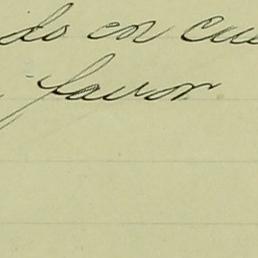 do en cue
favor